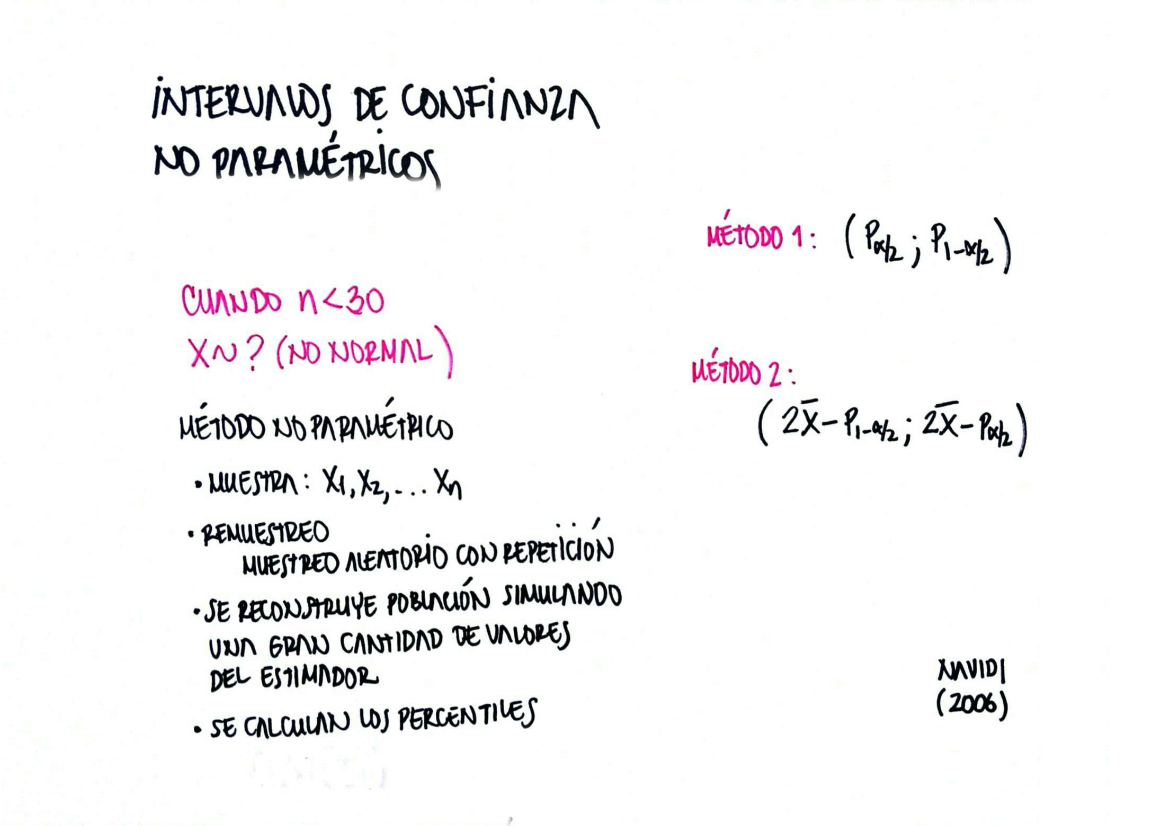 INTERVALOS DE CONFIANZA
NO PARAMÉTRICOS
CUANDO n<30
X~? (NO NORMAL)
MÉTODO NO PARAMÉTRICO
• MUESTRA: X1, X2, ... Xn
• REMUESTREO
MUESTREO ALEATORIO CON REPETICIÓN
• SE RECONSTRUYE POBLACIÓN SIMULANDO
UNA GRAN CANTIDAD DE VALORES
DEL ESTIMADOR
• SE CALCULAN LOS PERCENTILES
MÉTODO 1: (Pα/2 ; P1-α/2)
MÉTODO 2:
(2X̄ - P1-α/2 ; 2X̄ - Pα/2)
NAVIDI
(2006)